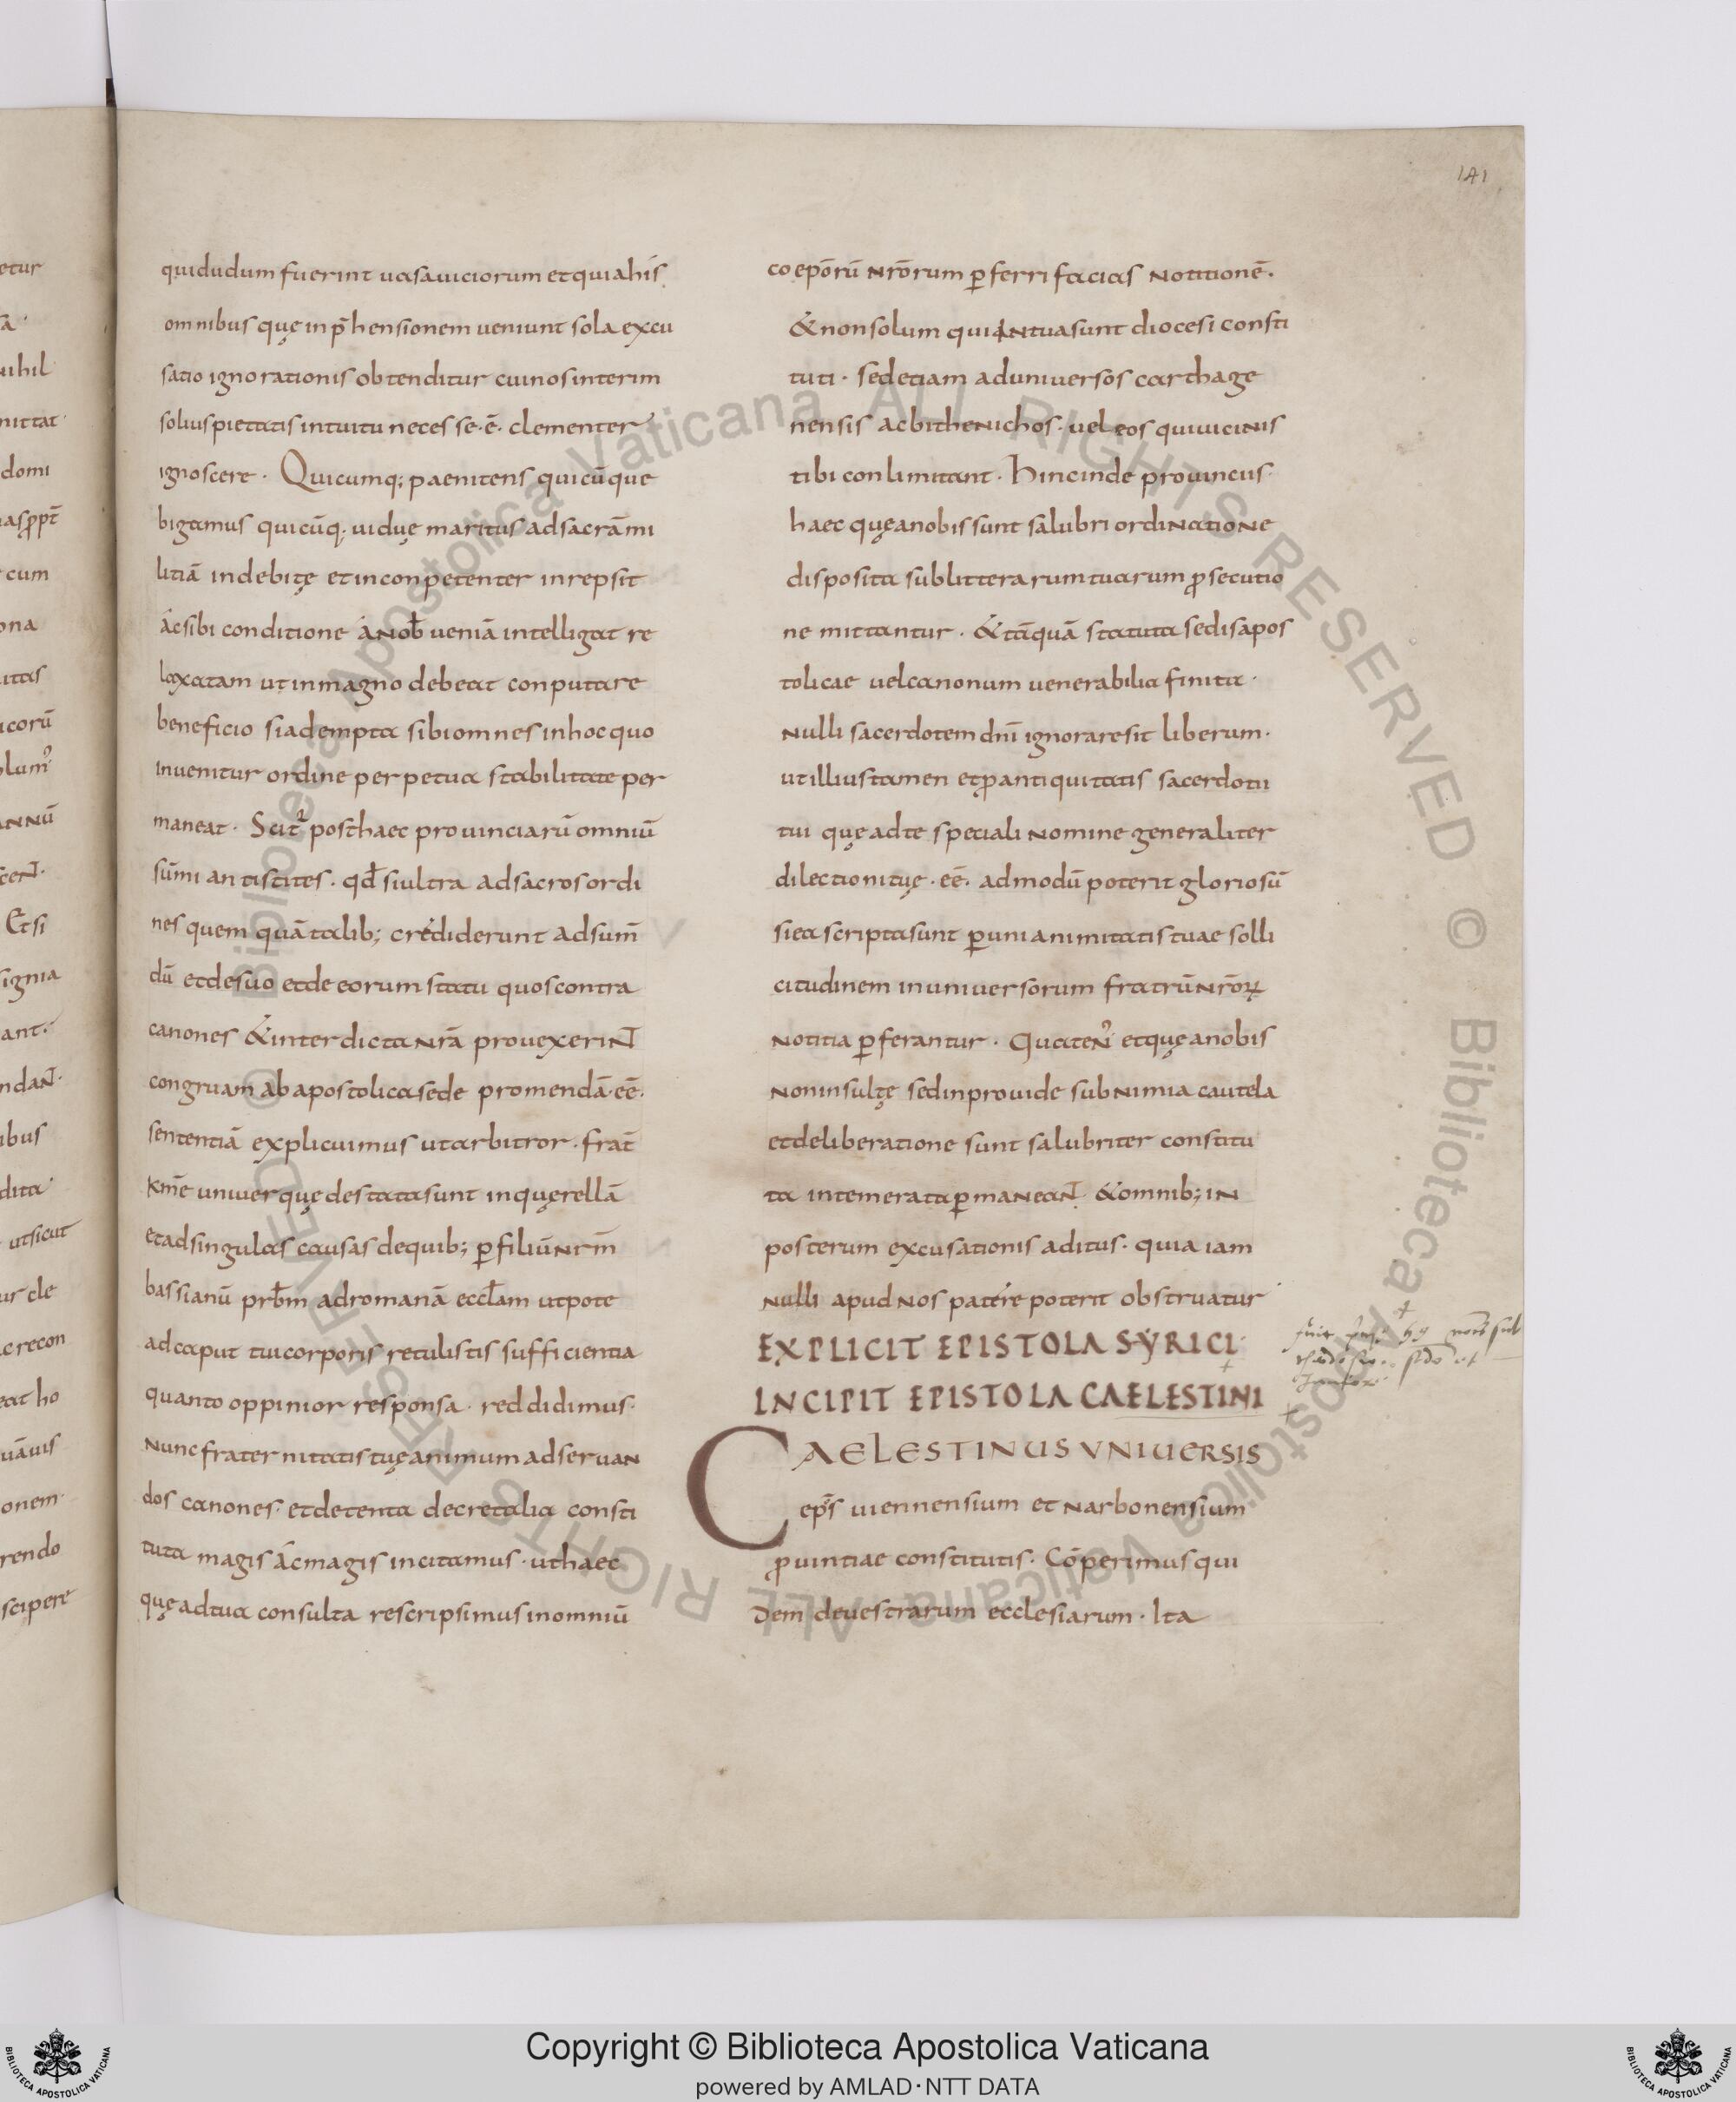 141
quidudum fuerint uasauiciorum et quiahis
omnibus quę in p̄hensionem ueniunt sola excu
satio ignorationis obtenditur cui nos interim
solius pietatis intuitu necesse·ē· clementer
ignoscere · Quicumq; paenitens quicūque
bigamus quicūq; uiduę maritus ad sacrā mi
litiā indebitę et inconpetenter inrepsit
ác sibi conditione á nob̄ ueniā intelligat re
laxatam ut in magno debeat conputare
beneficio si adempta sibi omnes in hoc quo
inuenitur ordine perpetua stabilitate per
maneat · Scit̄ posthaec prouinciarū omniū
sūmi antistites · qd̄ si ultra ad sacros ordi
nes quem quā talib; crediderunt adsum̄
dū et de suo et de eorum statu quos contra
canones & interdicta nrā prouexerin̄
congruam ab apostolica sede promendā·eē·
sententiā explicuimus ut arbitror · frat̄
km̄e uniuerquę destata sunt in quęrellā
et ad singulas causas de quib; ꝑ filiū nrm̄
bassianū prb̄m ad romanā eccl̄am utpote
ad caput tui corporis retulistis sufficientia
quanto oppinior responsa · reddidimus·
Nunc fraternitatis tuę animum ad seruan
dos canones· et detenta decretalia consti
tuta magis ác magis incitamus · ut haec
quę ad tua consulta rescripsimus in omniū
coepōrū nrōrum ꝑferri facias notitionē·
& non solum qui in tua sunt diocesi consti
tuti · sed etiam ad uniuersos carthage
nensis ac bithenichos · uel eos qui uicinis
tibi conlimitant · hincinde prouinciis·
haec quę a nobis sunt salubri ordinatione
disposita sub litterarum tuarum ꝓsecutio
ne mittantur · & tāquā statuta sedis apos
tolicae uel canonum uenerabilia finita ·
Nulli sacerdotem dn̄i ignorare sit liberum·
ut illius tamen et ꝓ antiquitatis sacerdotii
tui quę ad te speciali nomine generaliter
dilectioni tuę·eē· admodū poterit gloriosū
si ea scripta sunt ꝑ unianimitatis tuae solli
citudinem in uniuersorum fratrū nrōꝝ
Notitia ꝑferantur · Quaten᾽ et quę a nobis
non insultę sed inprouide sub nimia cautela
et deliberatione sunt salubriter constitu
ta intemerata ꝑmanean̄· & omnib; in
posterum excusationis aditus · quia iam
Nulli apud nos patére poterit obstruatur
EXPLICIT EPISTOLA SYRICI·
INCIPIT EPISTOLA CAELESTINI
CAELESTINUS VNIUERSIS
ep̄s uiennensium et narbonensium
ꝓuintiae constitutis · Cōperimus qui
dem de uestrarum ecclesiarum · Ita
Copyright © Biblioteca Apostolica Vaticana
powered by AMLAD·NTT DATA
© Biblioteca Apostolica Vaticana ALL RIGHTS RESERVED © Biblioteca Apostolica Vaticana ALL RIGHTS RESERVED
BIBLIOTECA APOSTOLICA VATICANA
BIBLIOTECA APOSTOLICA VATICANA